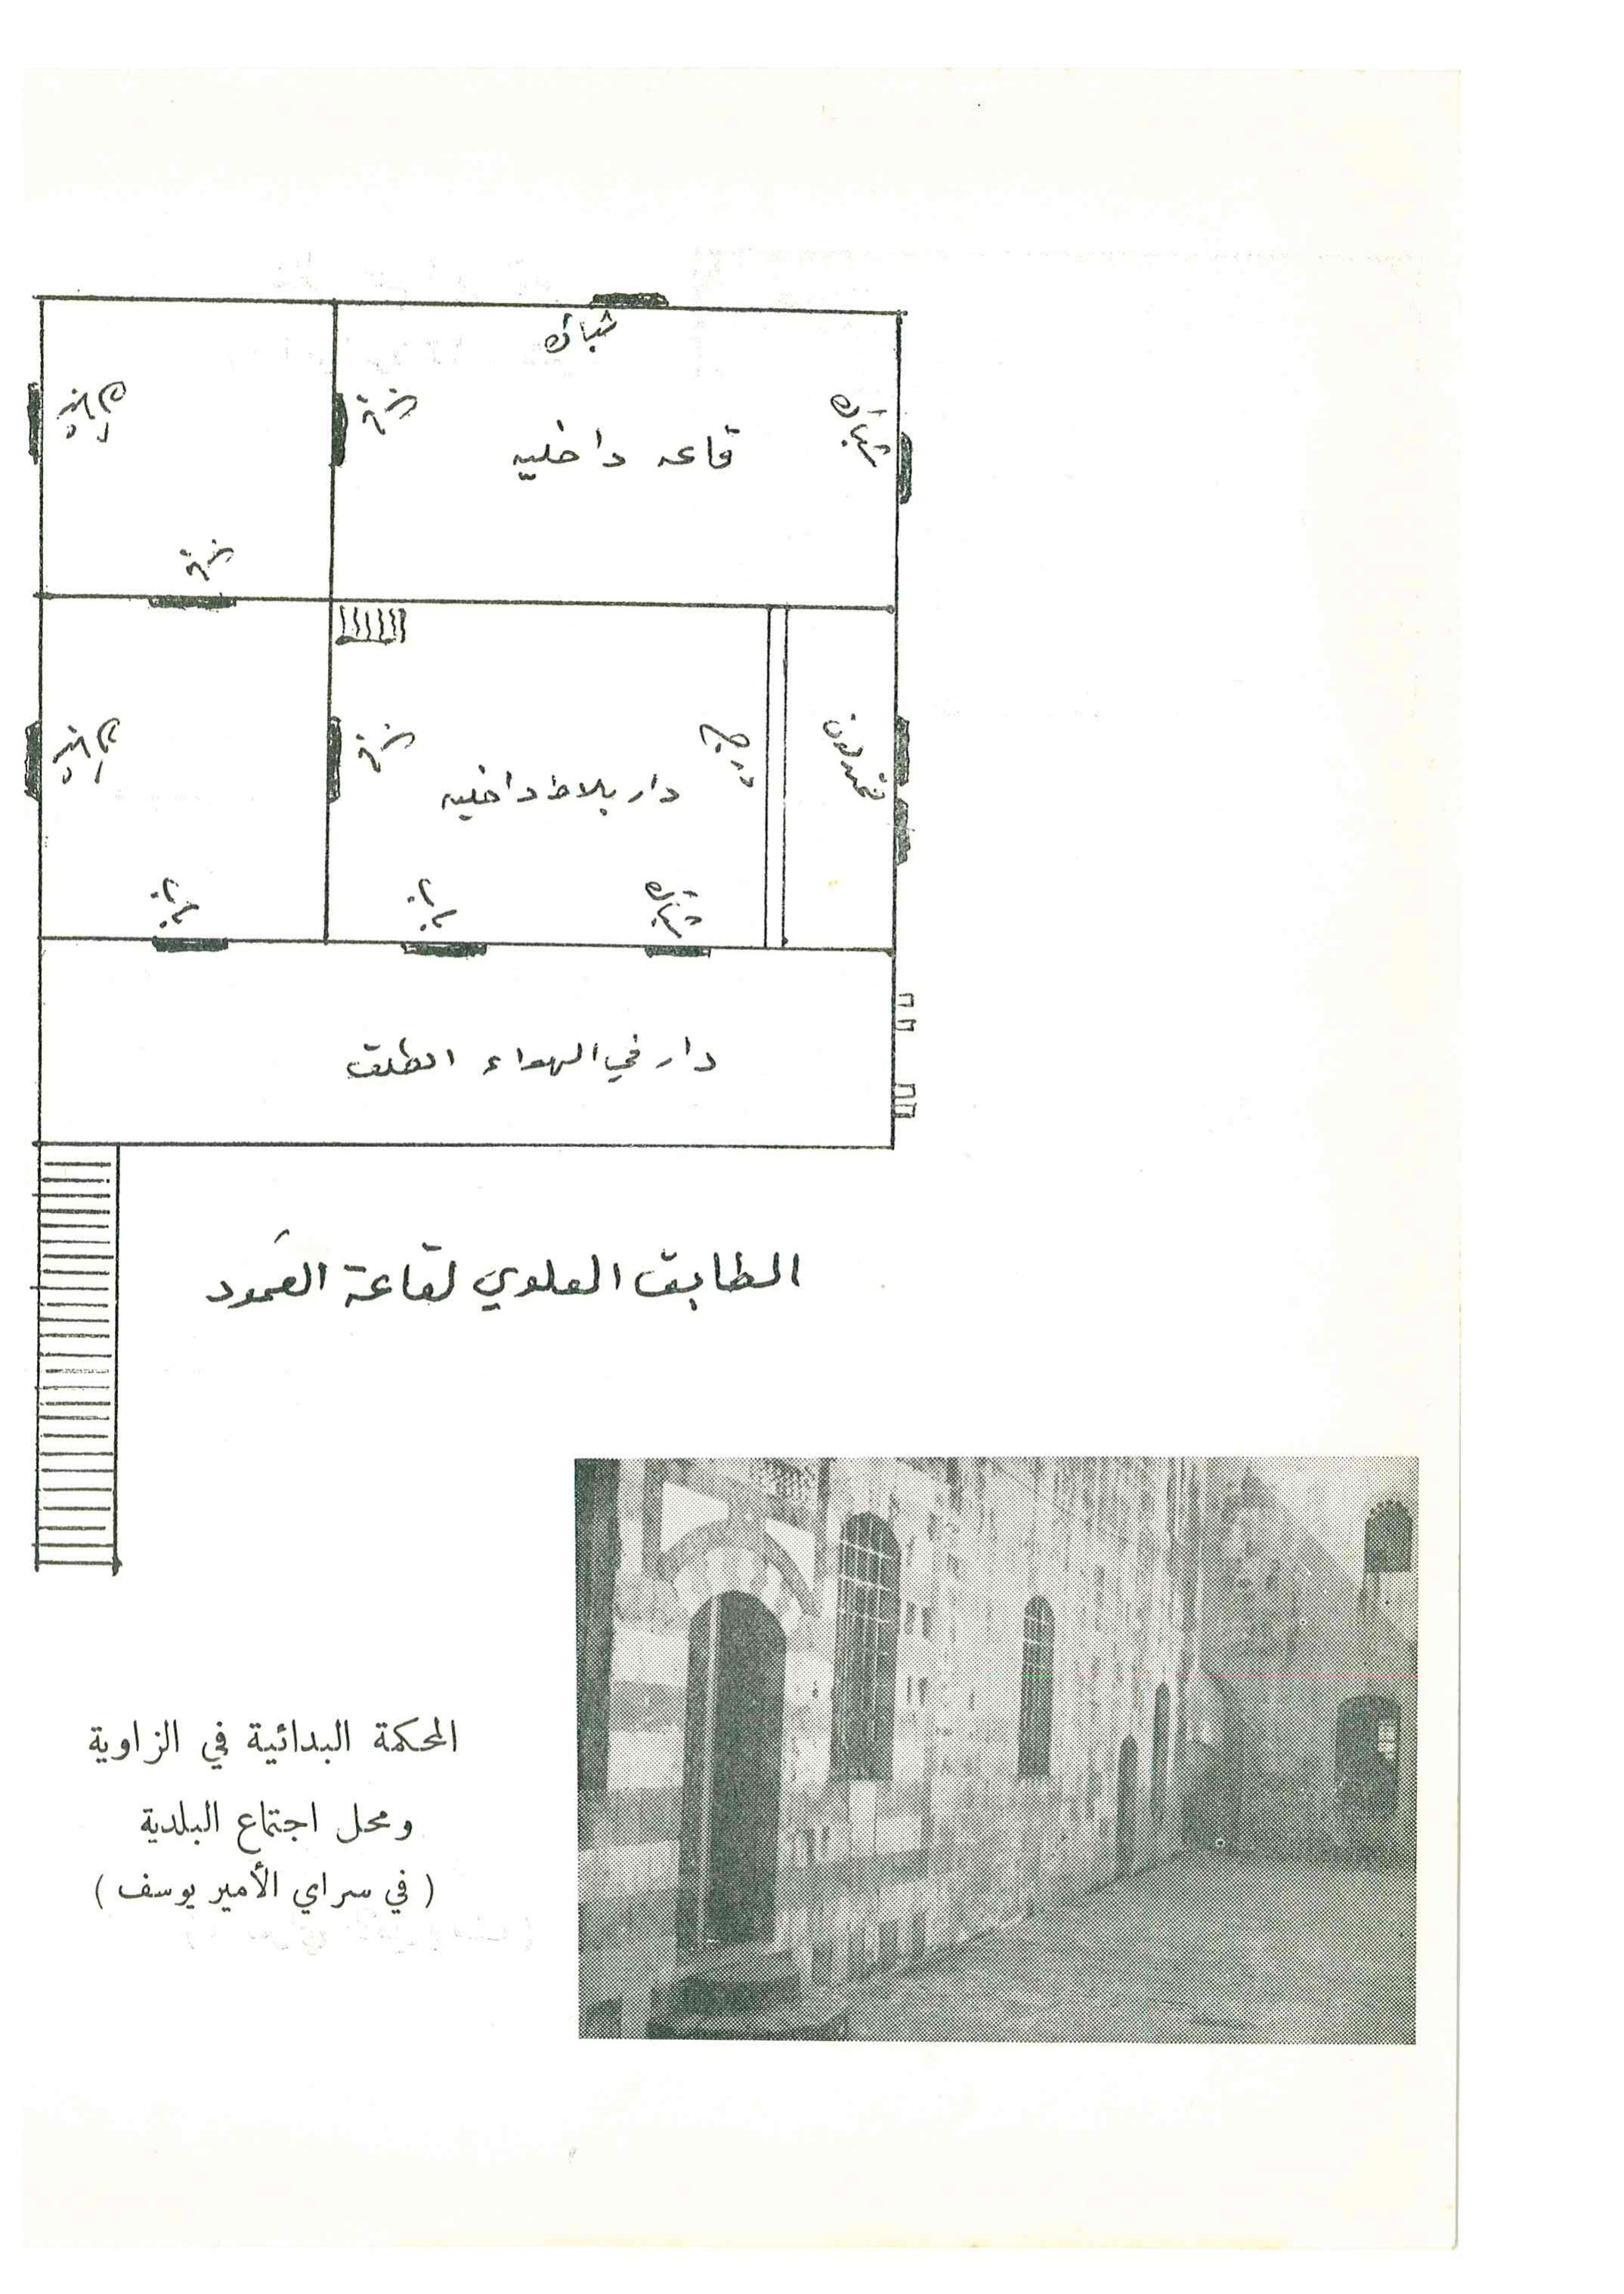 شباك
شباك
قاعه داخليه
درج
دار بلاط داخليه
باب
باب
شباك
دار في الهواء الطلق
الطابق العلوي لقاعة العَمود
المحكمة البدائية في الزاوية
ومحل اجتماع البلدية
( في سراي الأمير يوسف )